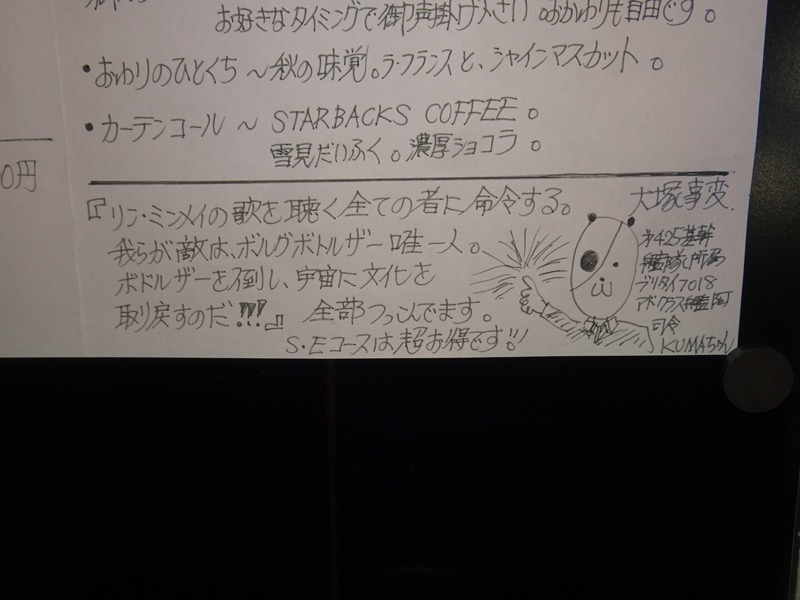 お好きなタイミングで御声掛け下さい。おかわりも自由です。
・おわりのひとくち ～秋の味覚。ラ・フランスと、シャインマスカット。
・カーテンコール ～ STARBACKS COFFEE。
雪見だいふく。濃厚ショコラ。
0円
『リン・ミンメイの歌を聴く全ての者に命令する。
我らが敵は、ボルグボドルザー唯一人。
ボドルザーを倒し、宇宙に文化を
取り戻すのだ!!!』 全部つっこんでます。
S・Eコースは超お得です!!
犬塚事変
オ425基幹
艦隊所属
ブリタイ7018
司令
KUMAちゃん